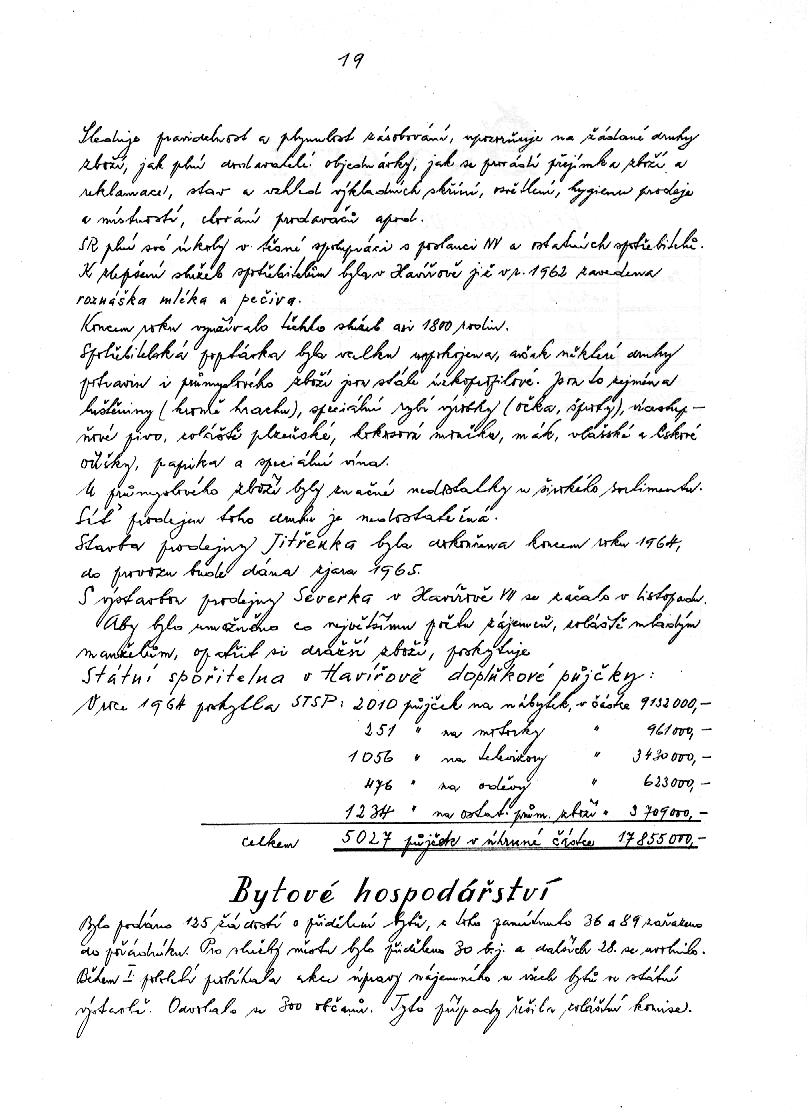 19
Sleduje pravidelnost a plynulost zásobování, upozorňuje na žádané druhy
zboží, jak plní dodavatelé objednávky, jak se provádí přejímka zboží a
reklamace, stav a vzhled výkladních skříní, osvětlení, hygienu prodeje
a místností, chování prodavačů apod.
SR plní své úkoly v těsné spolupráci s poslanci NV a ostatních spotřebitelů.
K zlepšení služeb spotřebitelům byla v Havířově již v r. 1962 zavedena
roznáška mléka a pečiva.
Koncem roku využívalo těchto služeb asi 1800 rodin.
Spotřebitelská poptávka byla valku uspokojena, avšak některé druhy
potravin i průmyslového zboží jsou stále úzkoprofilové. Jsou to zejména
luštěniny (kromě hrachu), speciální rybí výrobky (očka, šproty), vícestup-
ňové pivo, zvláště plzeňské, kokosová moučka, mák, vlašské a lískové
oříšky, paprika a speciální vína.
U průmyslového zboží byly značné nedostatky u širokého sortimentu.
Síť prodejen toho druhu je nedostatečná.
Stavba prodejny Jitřenka byla dokončena koncem roku 1964,
do provozu bude dána zjara 1965.
S výstavbou prodejny Severka v Havířově VII se začalo v listopadu.
Aby bylo umožněno co největšímu počtu zájemců, zvláště mladým
manželům, opatřit si dražší zboží, poskytuje
Státní spořitelna v Havířově doplňkové půjčky:
V roce 1964 poskytla STSP: 2010 půjček na nábytek, v částce 9132000,-
251 " na motorky " 961000,-
1056 " na televizory " 3430000,-
476 " na oděvy " 623000,-
1234 " na ostat. prům. zboží " 3709000,-
celkem 5027 půjček v úhrnné částce 17855000,-
Bytové hospodářství
Bylo podáno 125 žádostí o přidělení bytů, z toho zamítnuto 36 a 89 zařazeno
do pořadníku. Pro služby města bylo přiděleno 30 b.j. a dalších 28 se uvolnilo.
Během I. pololetí probíhala akce úpravy nájemného u všech bytů ve státní
výstavbě. Odvolalo se 300 občanů. Tyto případy řešila zvláštní komise.